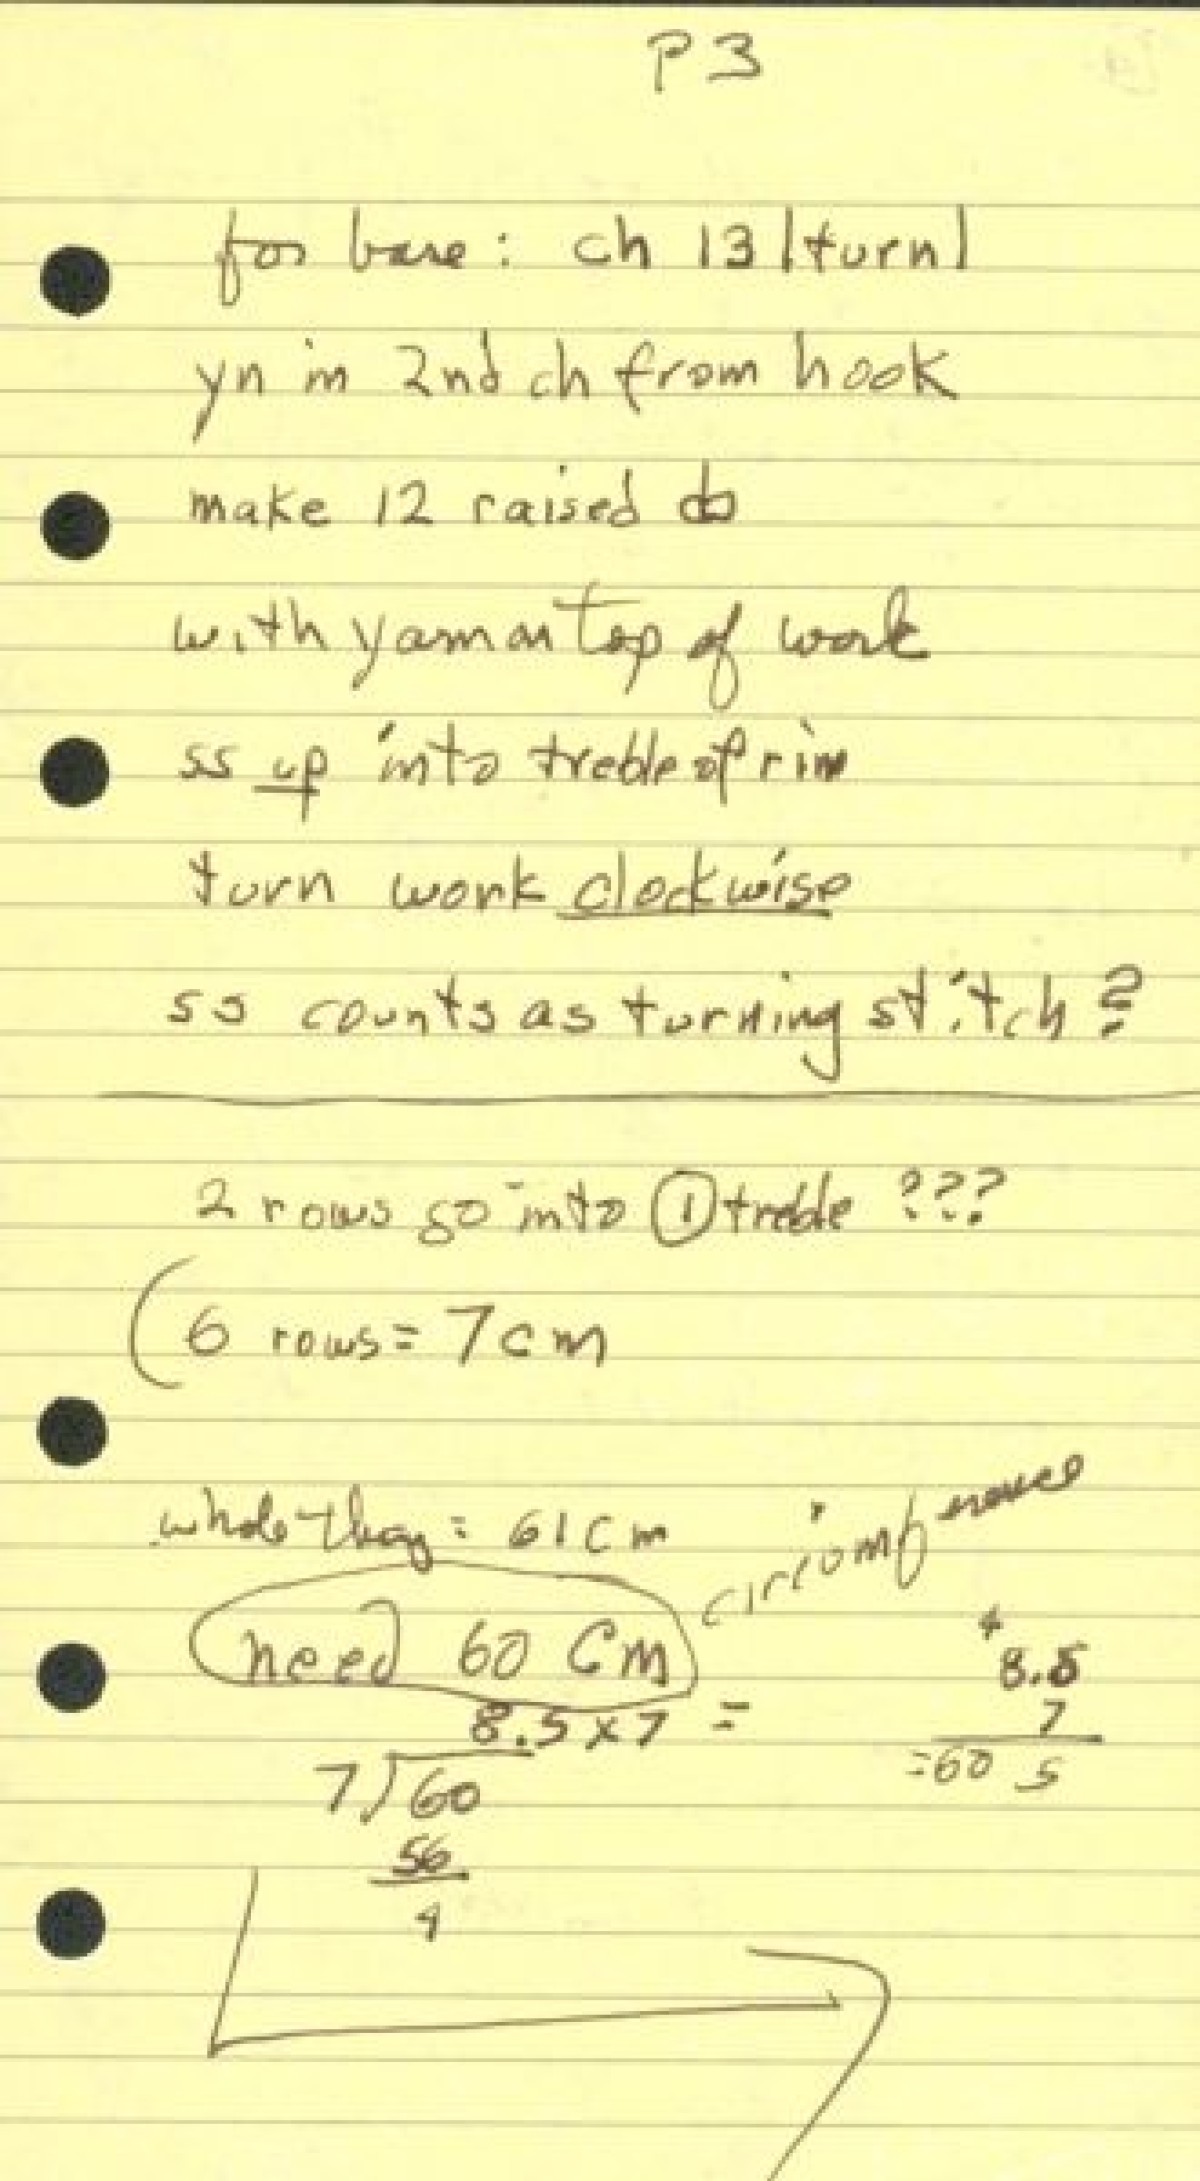 P3
for base: ch 13 |turn|
yn in 2nd ch from hook
make 12 raised dc
with yarn on top of work
ss up into treble of rim
turn work clockwise
ss counts as turning stitch?
2 rows go into 1 treble ???
(6 rows = 7cm
whole thing = 61cm
need 60 cm
8.5 x 7 =
7)60
56
4
4
8.5
7
=60 5